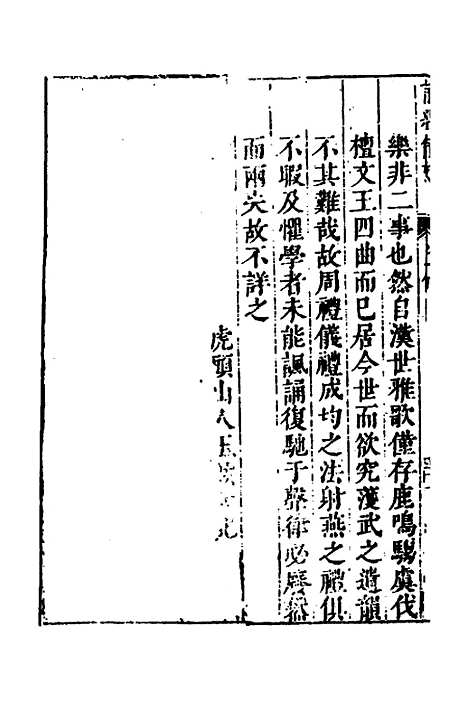 樂非二事也然自漢世雅歌僅存鹿鳴騶虞伐
檀文王四曲而已居今世而欲究濩武之遺韻
不其難哉故周禮儀禮成均之法射燕之禮俱
不暇及懼學者未能諷誦復馳于聲律必
而兩失故不詳之
虎頭山人